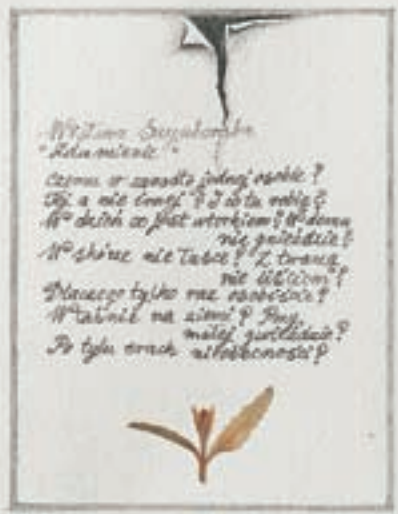 Wisława Szymborska
"Zdumienie"
Czemu w zanadto jednej osobie?
Tej a nie innej? I co tu robię?
W dzień co jest wtorkiem? W domu
nie gnieździe?
W skórze nie łusce? Z twarzą
nie liściem?
Dlaczego tylko raz osobiście?
Właśnie na ziemi? Przy
małej gwieździe?
Po tylu erach nieobecności?